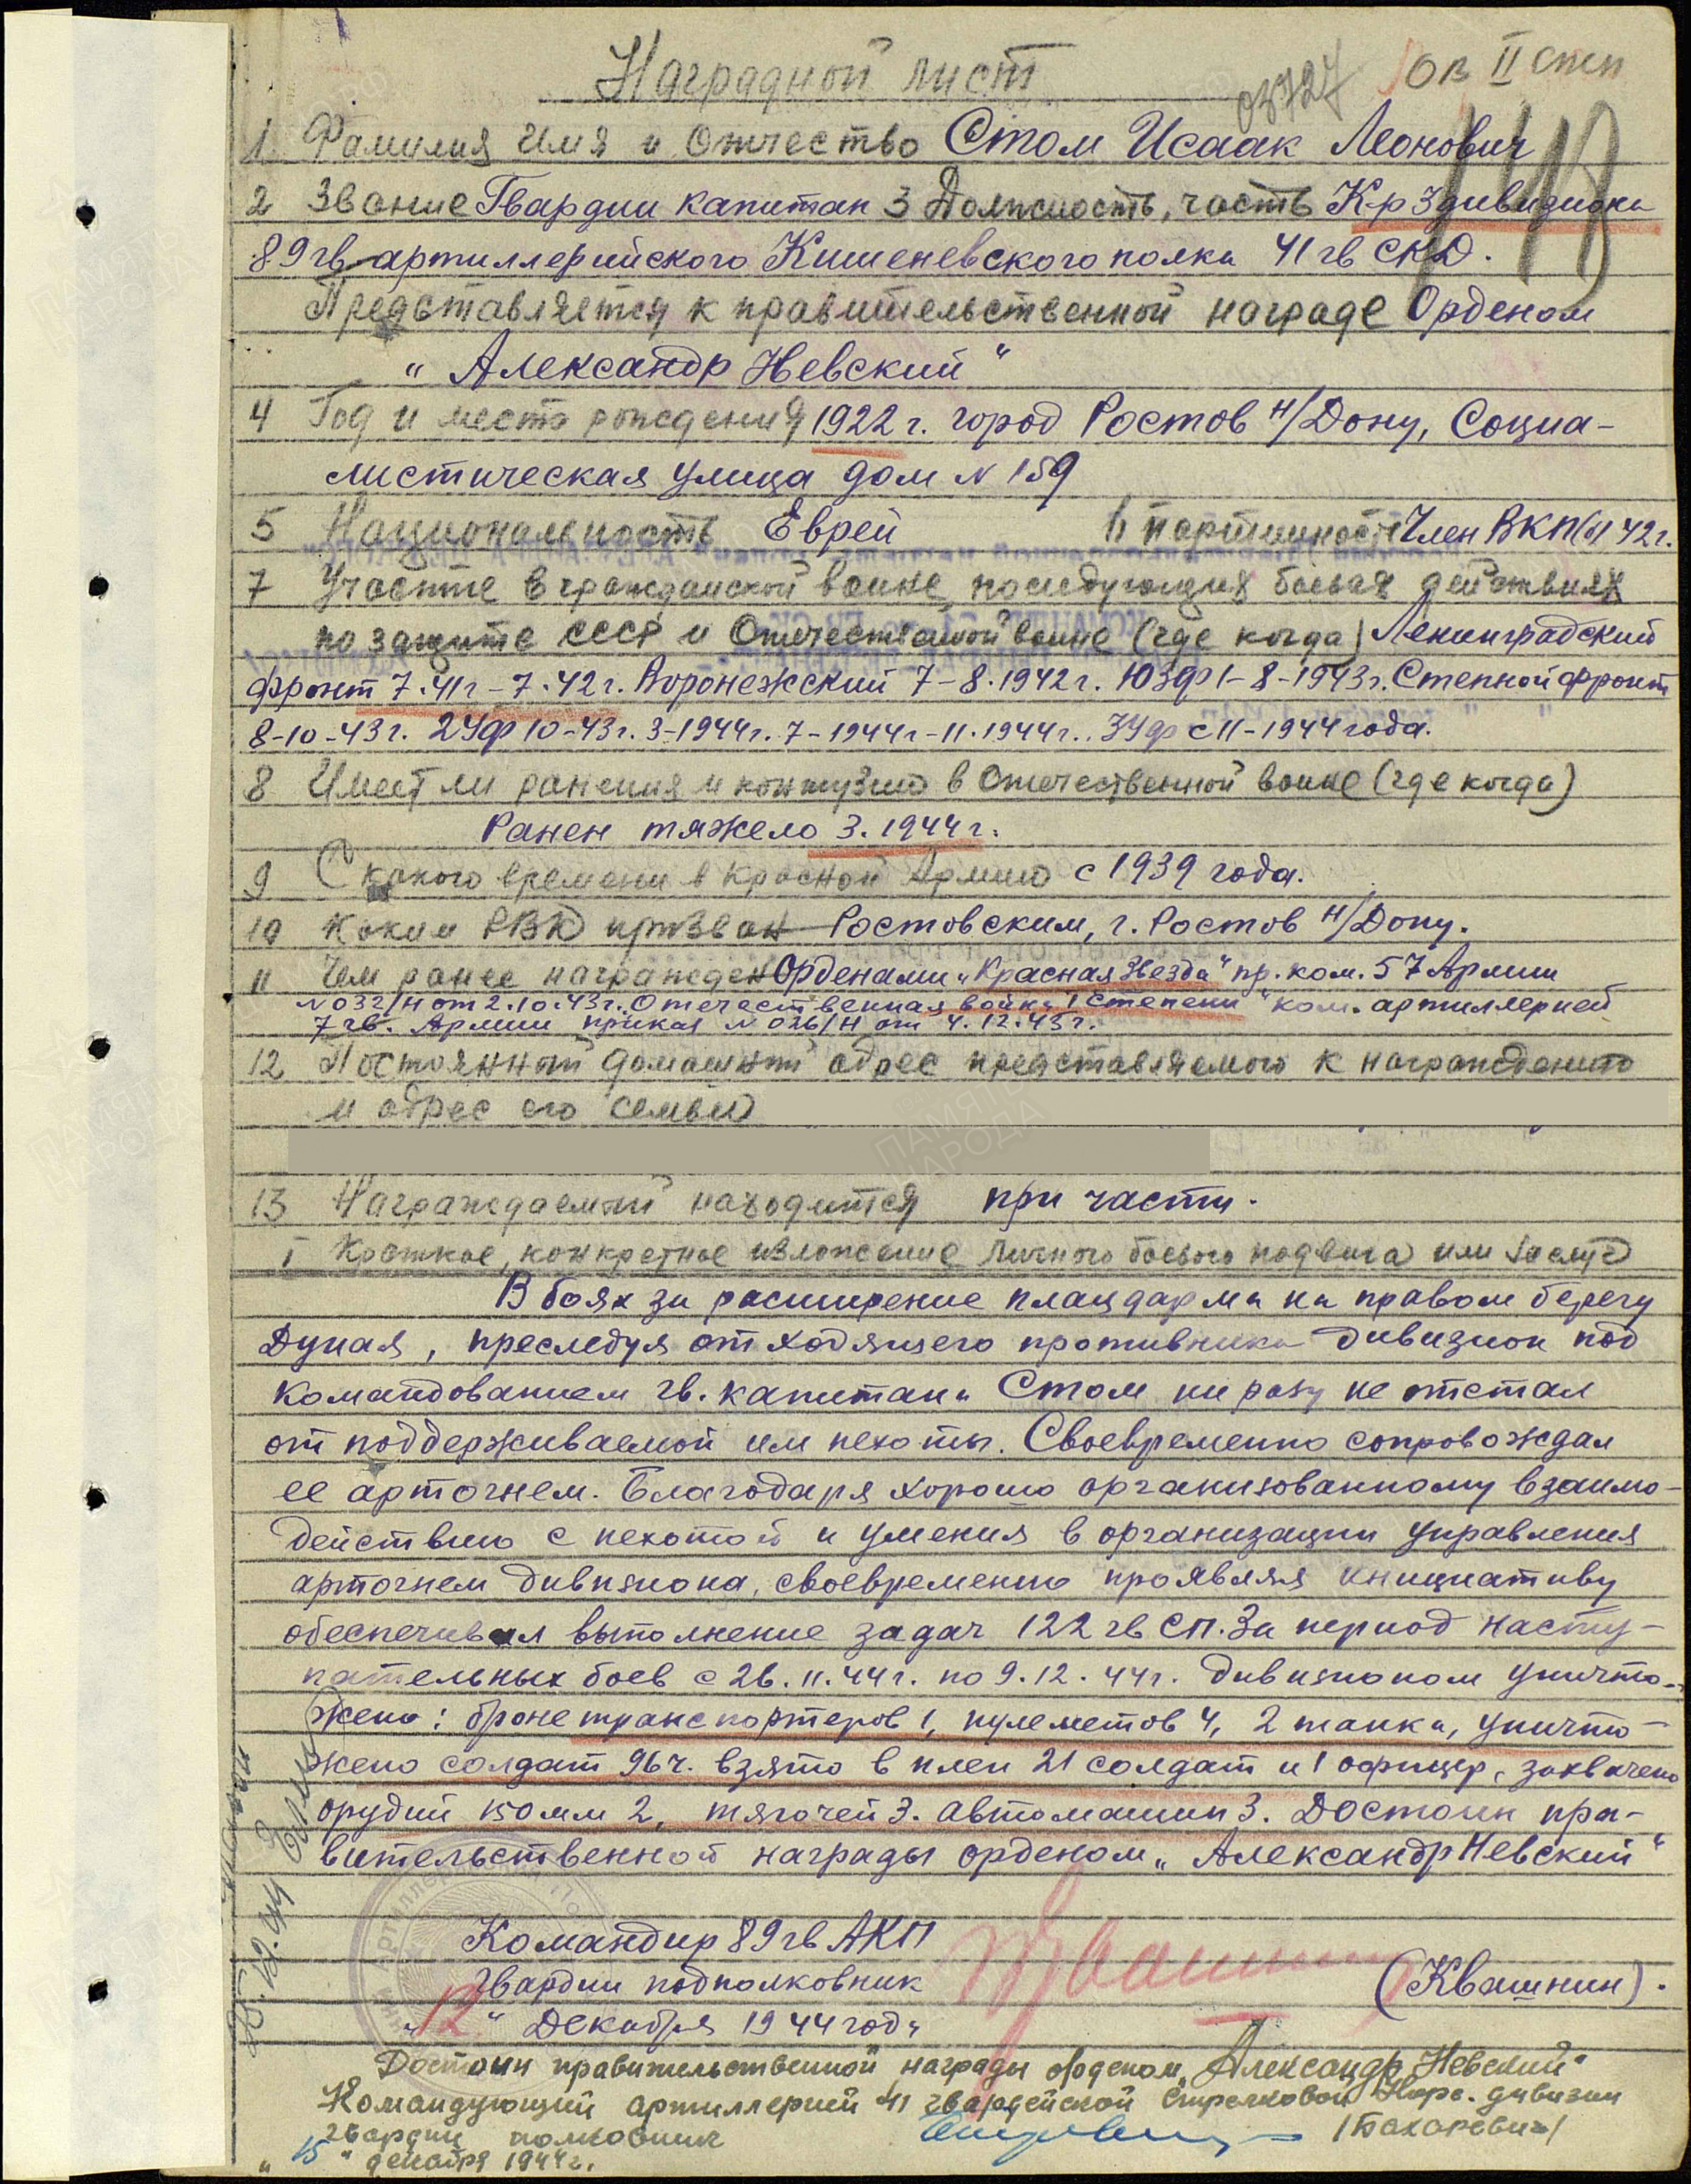 Наградной лист
03727
Ов II степ
1 Фамилия Имя и Отчество Стом Исаак Леонович
2 Звание Гвардии капитан 3 Должность, часть К-р 3 дивизиона
89 гв. артиллерийского Кишеневского полка 41 гв СКД.
Представляется к правительственной награде Орденом
„Александр Невский"
4 Год и место рождения 1922 г. город Ростов н/Дону, Социа-
листическая улица дом N 159
5 Национальность Еврей 6 партийность Член ВКП(б) 42 г.
7 Участие в гражданской войне, последующих боевых действиях
по защите СССР и Отечественной войне (где когда) Ленинградский
фронт 7.41г - 7.42г. Воронежский 7-8.1942г. ЮЗФ 1-8-1943г. Степной фронт
8-10-43г. 2Уф 10-43г. 3-1944г. 7-1944г-11.1944г.. 3Уф с 11-1944 года.
8 Имеет ли ранения и контузию в Отечественной войне (где когда)
Ранен тяжело 3.1944 г.
9 С какого времени в Красной Армии с 1939 года.
10 Каким РВК призван Ростовским, г. Ростов н/Дону.
11 Чем ранее награжден Орденами „Красная Звезда" пр. ком. 57 Армии
N 032/н от 2.10.43г. Отечественная война 1 степени" ком. артиллерией
7 гв. Армии приказ N 026/н от 4.12.43г.
12 Постоянный домашний адрес представляемого к награждению
и адрес его семьи
13 Награждаемый находится при части.
I Краткое, конкретное изложение личного боевого подвига или заслуг
В боях за расширение плацдарма на правом берегу
Дуная, преследуя отходящего противника дивизион под
командованием гв. капитана Стом ни разу не отстал
от поддерживаемой им пехоты. Своевременно сопровождал
ее артогнем. Благодаря хорошо организованному взаимо-
действию с пехотой и умения в организации управления
артогнем дивизиона, своевременно проявляя инициативу
обеспечивал выполнение задач 122 гв СП. За период насту-
пательных боев с 26.11.44г. по 9.12.44г. дивизионом уничто-
жено: бронетранспортеров 1, пулеметов 4, 2 танка, уничто-
жено солдат 96 ч. взято в плен 21 солдат и 1 офицер, захвачено
орудий 150 мм 2, тягочей 3. автомашин 3. Достоин пра-
вительственной награды орденом „Александр Невский"
Командир 89 гв АКП
Гвардии подполковник
(Квашнин).
„12" Декабря 1944 года
Достоин правительственной награды орденом „Александр Невский"
Командующий артиллерией 41 гвардейской стрелковой Корс. дивизии
гвардии полковник
/Бахаревич/
„15" декабря 1944 г.